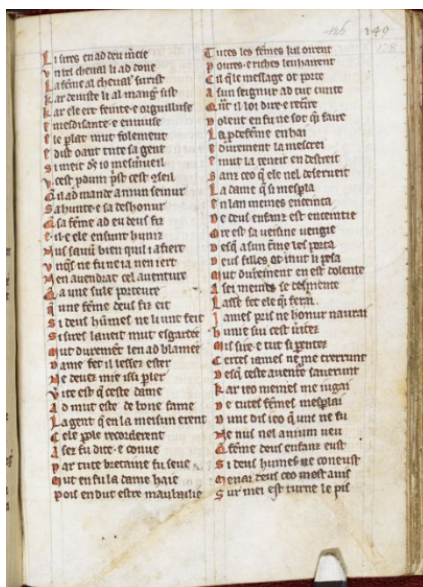 126 149
128
Li sires en ad deu mcie
Un tel cheval li ad done
La feme al cheval surist
kar deiuste li al mang sist
kar ele ert feinte e orguilluse
E mesdisante e enuiuse
Ele plat mut folement
E dist oant tute sa gent
Si meit ds io mesmueil
U cest pdum pst cest cseil
Qil ad mande a mun seinur
Sa hunte e sa deshonur
Q sa feme ad eu deus fiz
E il e ele en sunt huniz
Nus sauū bien quil i afiert
Unqs ne fu ne ia nen iert
Nen auendrat cel auenture
Q a une sule porteure
Q une feme deus fiz eit
Si deus hūmes ne li unt feit
Si sires laueit mut esgartee
Mut duremēt len ad blamee
Dame fet il lessez ester
Ne deuez mie issi pler
Uite est q ceste dame
Ad mut este de bone fame
La gent q en la meisun erent
Cele pole recorderent
Asez fu dite e conue
Par tute bretaine fu seue
Mut en fu la dame haie
Pois en dut estre maubailie
Tutes les fēmes ki loirent
Poures e riches lenhairent
Cil q le message ot porte
A sun seignur ad tut cunte
Qnt il loi dire e retire
Dolent en fu ne sot q faire
La pdefēme en hai
E durement la mescrei
E mut la teneit en destreit
Sanz ceo q ele nel deserueit
La dame q si mespla
En lan memes enceinta
De deus enfanz est enceintie
Ore est sa ueisine uengie
Desq a sun tme les porta
Deus filles ot mut li pesa
Mut durement en est dolente
A sei meimes se desmente
Lasse fet ele q ferai
Iames pris ne honur naurai
Hunie sui cest uitez
Mis sire e tut si parenz
Certes iames ne me crerrunt
Desq ceste auente saurunt
kar ieo memes me iugai
De tutes femes mesplai
Dunc dis ieo q unc ne fu
Ne nus nel auium ueu
Q feme deus enfanz eust
Si deus humes ne coneust
Or nai deus ceo mest auis
Sur mei est turne le pis